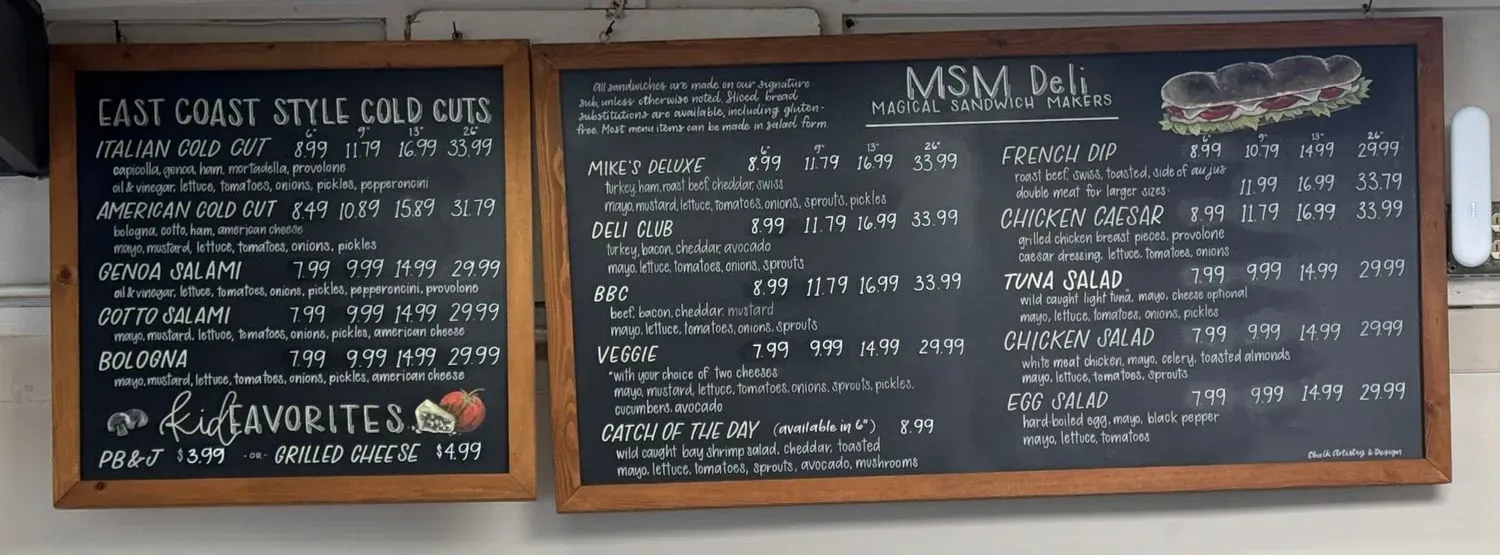 EAST COAST STYLE COLD CUTS
6" 9" 13" 26"
ITALIAN COLD CUT 8.99 11.79 16.99 33.99
capicolla, genoa, ham, mortadella, provolone
oil & vinegar, lettuce, tomatoes, onions, pickles, pepperoncini
AMERICAN COLD CUT 8.49 10.89 15.89 31.79
bologna, cotto, ham, american cheese
mayo, mustard, lettuce, tomatoes, onions, pickles
GENOA SALAMI 7.99 9.99 14.99 29.99
oil & vinegar, lettuce, tomatoes, onions, pickles, pepperoncini, provolone
COTTO SALAMI 7.99 9.99 14.99 29.99
mayo, mustard, lettuce, tomatoes, onions, pickles, american cheese
BOLOGNA 7.99 9.99 14.99 29.99
mayo, mustard, lettuce, tomatoes, onions, pickles, american cheese
kid FAVORITES
PB & J $3.99 -OR- GRILLED CHEESE $4.99
All sandwiches are made on our signature
sub, unless otherwise noted. Sliced bread
substitutions are available, including gluten-
free. Most menu items can be made in salad form.
MSM Deli
MAGICAL SANDWICH MAKERS
6" 9" 13" 26"
MIKE'S DELUXE 8.99 11.79 16.99 33.99
turkey, ham, roast beef, cheddar, swiss
mayo, mustard, lettuce, tomatoes, onions, sprouts, pickles
DELI CLUB 8.99 11.79 16.99 33.99
turkey, bacon, cheddar, avocado
mayo, lettuce, tomatoes, onions, sprouts
BBC 8.99 11.79 16.99 33.99
beef, bacon, cheddar, mustard
mayo, lettuce, tomatoes, onions, sprouts
VEGGIE 7.99 9.99 14.99 29.99
*with your choice of two cheeses
mayo, mustard, lettuce, tomatoes, onions, sprouts, pickles,
cucumbers, avocado
CATCH OF THE DAY (available in 6") 8.99
wild caught bay shrimp salad, cheddar, toasted
mayo, lettuce, tomatoes, sprouts, avocado, mushrooms
6" 9" 13" 26"
FRENCH DIP 8.99 10.79 14.99 29.99
roast beef, swiss, toasted, side of au jus
double meat for larger sizes 11.99 16.99 33.79
CHICKEN CAESAR 8.99 11.79 16.99 33.99
grilled chicken breast pieces, provolone
caesar dressing, lettuce, tomatoes, onions
TUNA SALAD 7.99 9.99 14.99 29.99
wild caught light tuna, mayo, cheese optional
mayo, lettuce, tomatoes, onions, pickles
CHICKEN SALAD 7.99 9.99 14.99 29.99
white meat chicken, mayo, celery, toasted almonds
mayo, lettuce, tomatoes, sprouts
EGG SALAD 7.99 9.99 14.99 29.99
hard-boiled egg, mayo, black pepper
mayo, lettuce, tomatoes
Chalk Artistry & Design